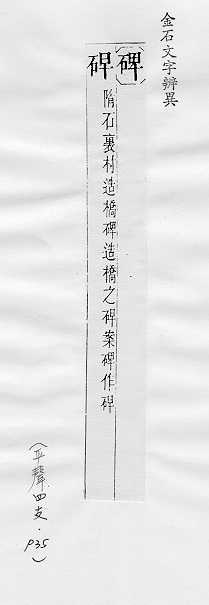 金石文字辨異
〔碑〕
碑 隋石裏村造橋碑造橋之碑案碑作碑
(平聲四支·P35)